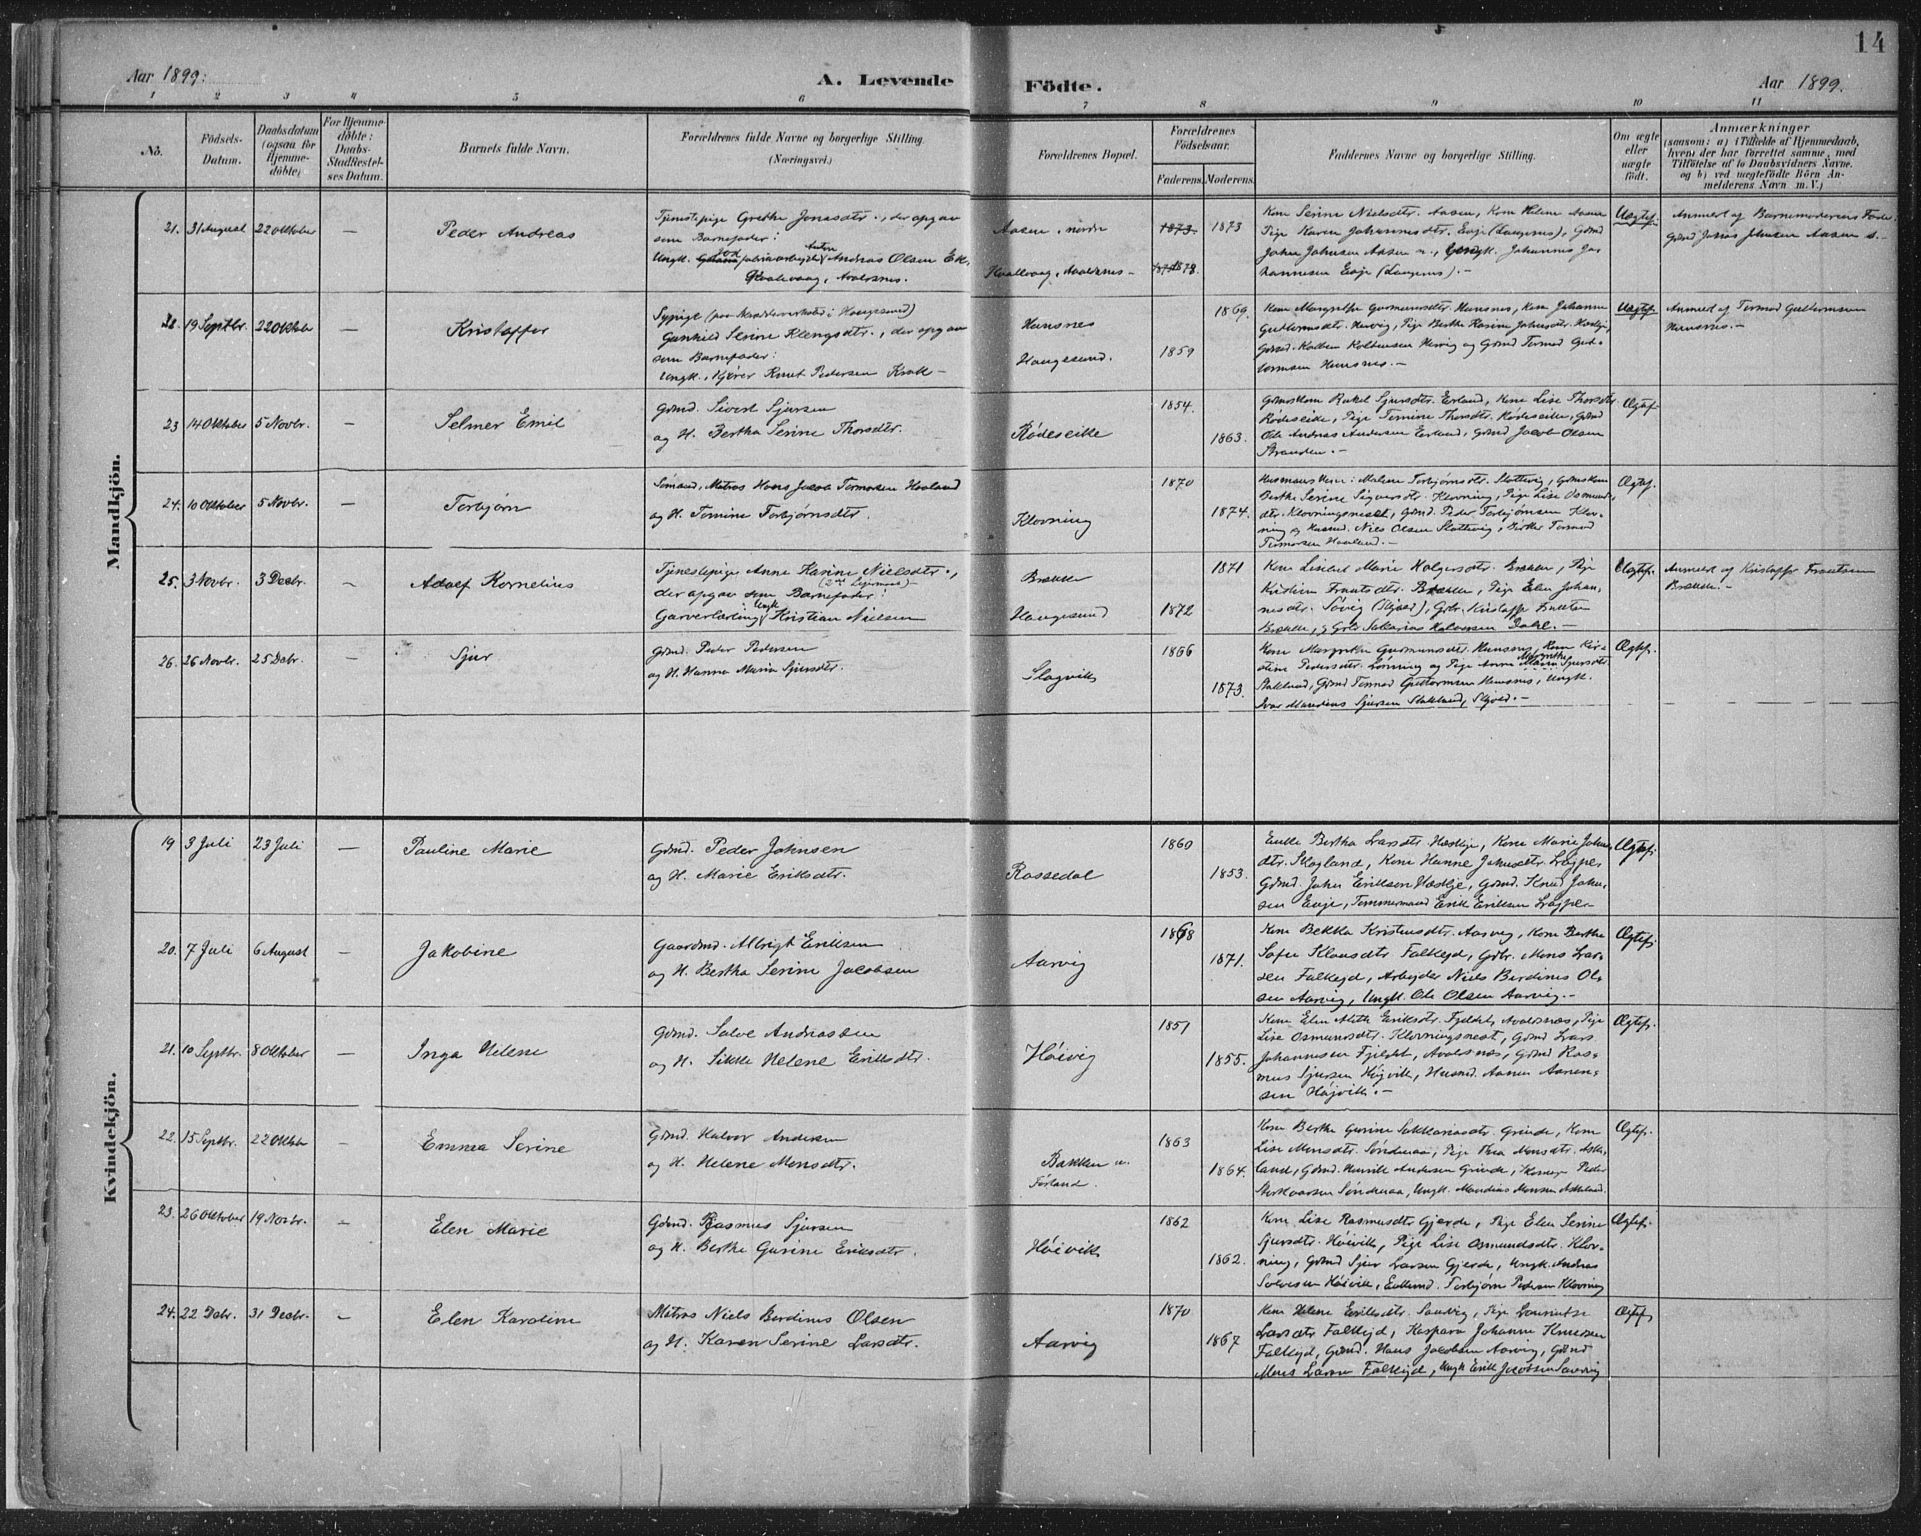 14
Aar 1899.
A. Levende Födte.
Aar 1899.
1 2 3 4 5 6 7 8 9 10 11
No.
Födsels-Datum.
Daabsdatum (ogsaa for Hjemmedöbte)
For Hjemmedöbte: Daabs-Stadfæstelses Datum.
Barnets fulde Navn.
Forældrenes fulde Navne og borgerlige Stilling. (Næringsvei.)
Forældrenes Bopæl.
Forældrenes Födselsaar.
Faderens. Moderens.
Faddernes Navne og borgerlige Stilling.
Om ægte eller uægte födt.
Anmærkninger
(saasom: a) i Tilfælde af Hjemmedaab, hvem der har forrettet samme, med Tilföielse af to Daabsvidners Navne, og b) ved uægtefödte Börn Anmelderens Navn m. V.)
Mandkjön.
21. 31 August 22 Oktober — Peder Andreas
Tjenestepige Grethe Jonasdtr., der opgav
som Barnefader:
Andreas Olsen
Kvalevaag, Avaldsnes.
Aasen, nordre
Kvallevaag, Avaldsnes —
1873 1873
1878.
Kone Serine Nielsdtr. Aasen, Kone Helene Aasen
Pige Karen Johannesdtr. Eoje (Langenes), Gdmd
John Johnsen Aasen n., Ungk. Johannes Jo-
hannesen Eoje (Langenes). —
Uægtef.
Anmeldt af Barnemoderens Fader
Gdmd Jonas Johnsen Aasen n. —
22. 19 Septbr. 22 Oktober — Kristoffer
Sypige (paa i Haugesund)
Gunhild Serine Klengsdtr., der opgav
som Barnefader:
Ungk., Kjører Knut Pedersen Krak —
Hunsnes
Haugesund.
1869.
1859
Kone Margrethe Gurmundsdtr. Hunsnes, Kone Johanne
Guttormsdtr. Hervig, Pige Berthe Karine Johnsdtr. Hæstje,
Gdmd. Kolben Kolbensen Hervig og Gdmd Tormod Gut-
tormsen Hunsnes. —
Uægtef.
Anmeldt af Tormod Guttormsen
Hunsnes. —
23 14 Oktober 5 Novbr. — Selmer Emil
Gdmd. Sivert Sjursen
og H. Bertha Serine Thorsdtr.
Rødeseike
1854.
1863.
Gdmdskone Rakel Sjursdtr. Erland, Kone Lise Thorsdtr
Rødeseike, Pige Tomine Thorsdtr. Rødeseike, Gdmd
Ole Andreas Andersen Erland, Gdmd Jacob Olsen
Stranden. —
Ægtef.
24. 10 Oktober 5 Novbr. — Torbjørn
Sømand, Matros Hans Jacob Tormodsen Haaland
og H. Tomine Torbjørnsdtr.
Klovning
1870
1874.
Husmandskone: Malene Torbjørnsdtr. Slottevig, Gdmdskone
Berthe Serine Sigvarsdtr. Klovning, Pige Lise Osmund-
dtr. Klovningsneset, Gdmd. Peder Torbjørnsen Klov-
ning og Husmd. Niels Olsen Slottevig, Tormod
Tormodsen Haaland. —
Ægtef.
25. 3 Novbr. 3 Decbr. — Adolf Kornelius
Tjenestepige Anne Karine Nielsdtr.,
(2det Leiermaal) —
der opgav som Barnefader:
Garverlærling Ungk Kristian Nielsen
Brække
Haugesund
1871
1872
Kone Lisebet Marie Holgersdtr. Brække, Pige
Kristine Frantsdtr. Brække, Pige Elen Johan-
nesdtr. Søvig (Skjold), Gbr. Kristoffer
Brække, og Gbr. Sakarias Halvorsen Dahl. —
Uægtef.
Anmeldt af Kristoffer Frantsen
Brække. —
26. 26 Novbr. 25 Debr. — Sjur
Gdmd. Peder Pedersen
og H. Hanna Maria Sjursdtr.
Slogvik
1866
1873.
Kone Margrethe Gurmundsdtr. Hunsnes, Kone Kir-
stine Pedersdtr. Lonning og Pige Anne Margrethe Sjursdtr.
Stakland, Gdmd Tormod Guttormsen Hunsnes, Ungk.
Ivar Mandius Sjursen Stakland, Skjold. —
Ægtef.
Kvindekjön.
19 3 Juli 23 Juli — Pauline Marie
Gdmd. Peder Johnsen
og H. Marie Eriksdtr.
Rossedal
1860
1853.
Enke Bertha Larsdtr. Hæstje, Kone Marie Johns
dtr. Skogland, Kone Hanne Johnsdtr. Lojpe
Gdmd. John Eriksen Hæstje, Gdmd. Knud John-
sen Eoje, Tømmermand Erik Eriksen Lojpe —
Ægtef.
20. 7 Juli 6 August — Jakobine
Gaardmd. Albrigt Eriksen
og H. Bertha Serine Jacobsen
Aarvig
1868
1871.
Kone Bekka Kristensdtr. Aarvig, Kone Berthe
Sofie Klausdtr. Falkejd, Gbr. Mons Lar-
sen Falkejd, Arbejder Niels Berdines Ol-
sen Aarvig, Ungk. Ole Olsen Aarvig. —
Ægtef.
21. 10 Septbr. 8 Oktober — Inga Helene
Gdmd. Salve Andreassen
og H. Sikke Helene Eriksdtr.
Höivig
1851
1855.
Kone Elen Eriksdtr. Fjeldet, Avaldsnes, Pige
Lise Osmundsdtr. Klovningsnest, Gdmd Lars
Johannesen Fjeldet, Avaldsnes, Gdmd Ras-
mus Sjursen Højvik, Husmd. Aanen Aanen-
sen Højvik. —
Ægtef.
22. 15 Septbr. 22 Oktober — Emma Serine
Gdmd. Halvor Andersen
og H. Helene Monsdtr.
Bakken u.
Førland.
1863
1864.
Kone Berthe Gurine Sakkariasdtr. Grinde, Kone
Lise Monsdtr. Sønderaa, Pige Thea Monsdtr. Aske-
land, Gdmd. Henrik Andersen Grinde, Peder
Sønderaa, Ungk. Mandius Monsen Askeland.
Ægtef.
23. 26 Oktober 19 Novbr. — Elen Marie
Gdmd. Rasmus Sjursen
og H. Berthe Gurine Eriksdtr.
Höivik
1862
1862.
Kone Lise Rasmusdtr Gjerde, Pige Elen Serine
Sjursdtr. Höivik, Pige Lise Osmundsdtr. Klov-
ning, Gdmd Sjur Larsen Gjerde, Ungk. Andreas
Salvesen Höivik, Enkemd. Torbjørn Pedersen Klovning
Ægtef.
24. 22 Debr. 31 Decbr. — Elen Karoline
Matros Niels Berdines Olsen
og H. Karen Serine Larsdtr.
Aarvig
1870
1867
Kone Helene Eriksdtr. Sandvig, Pige Lourentse
Larsdtr Falkejd, Kaspara Johanne Knudsen
Falkejd, Gdmd. Hans Jacobsen Aarvig, Gdmd
Mons Larsen Falkejd, Ungk Erik Jacobsen Sandvig
Ægtef.